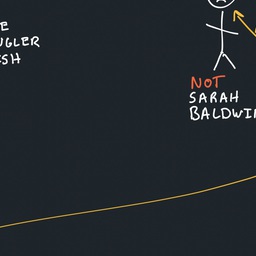 E
NGLER
SH
NOT
SARAH
BALDWI